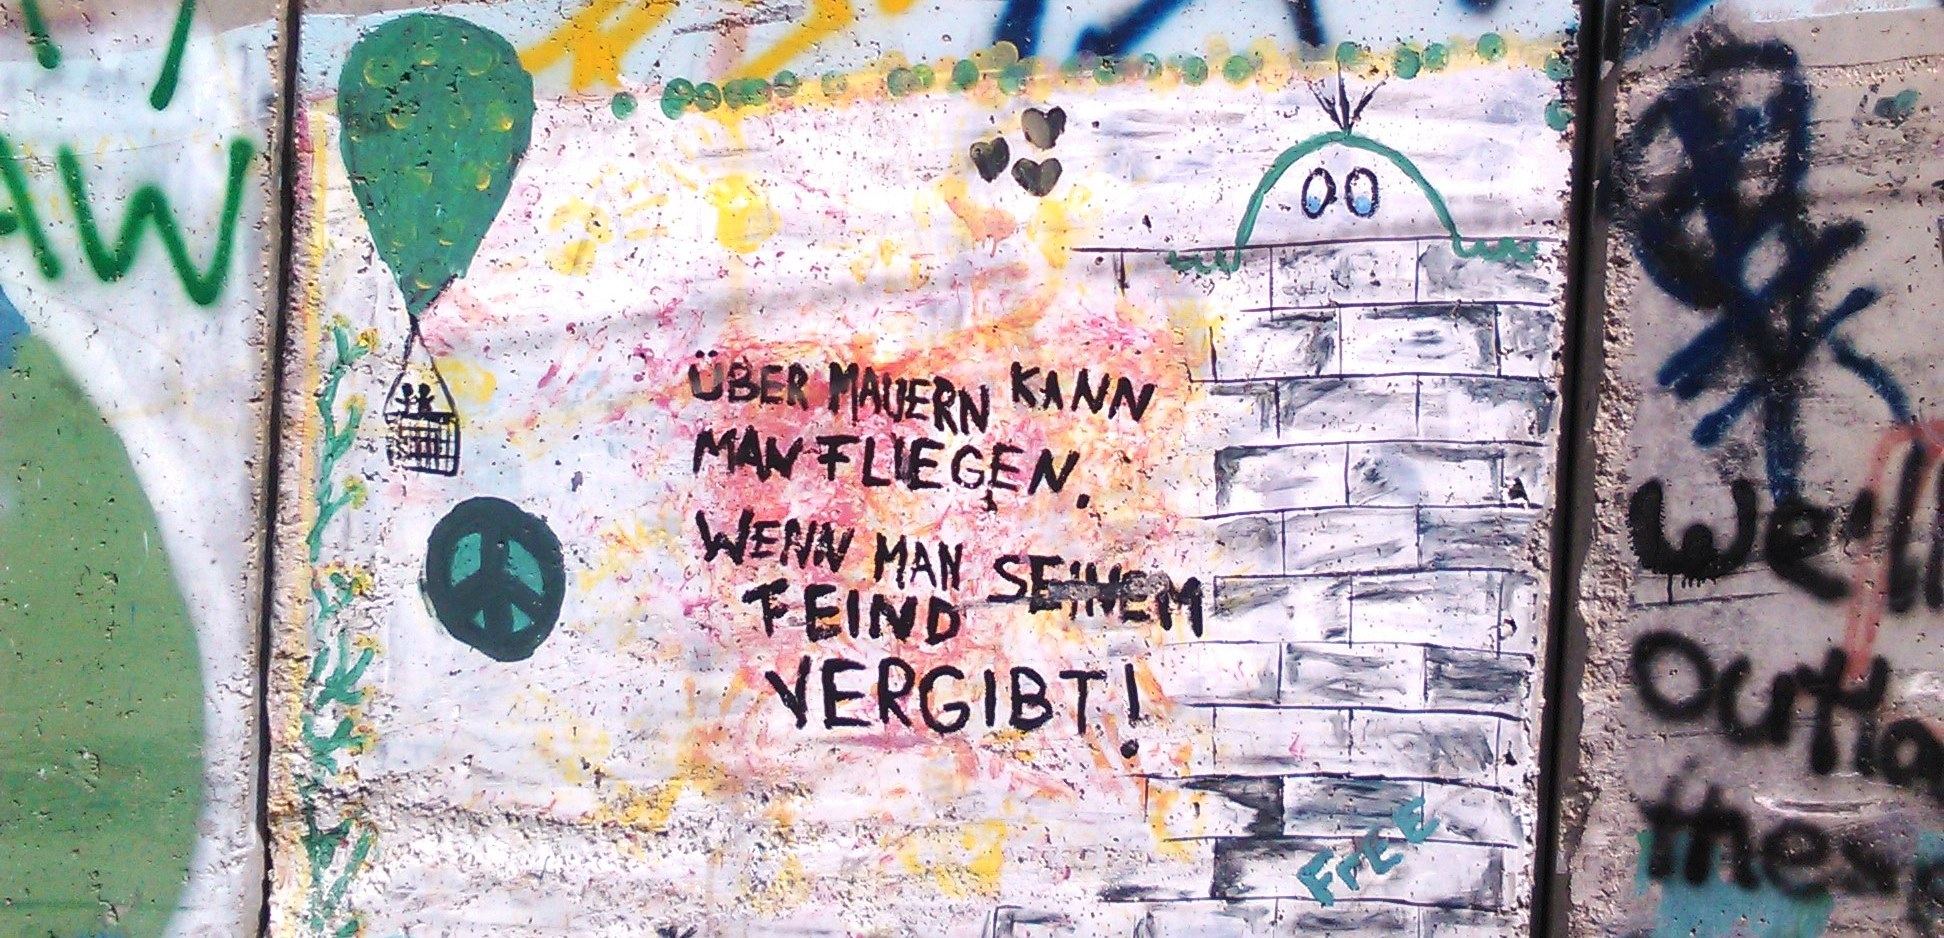 AW
ÜBER MAUERN KANN
MAN FLIEGEN.
WENN MAN SEINEM
FEIND
VERGIBT!
FrEE
we'll
these